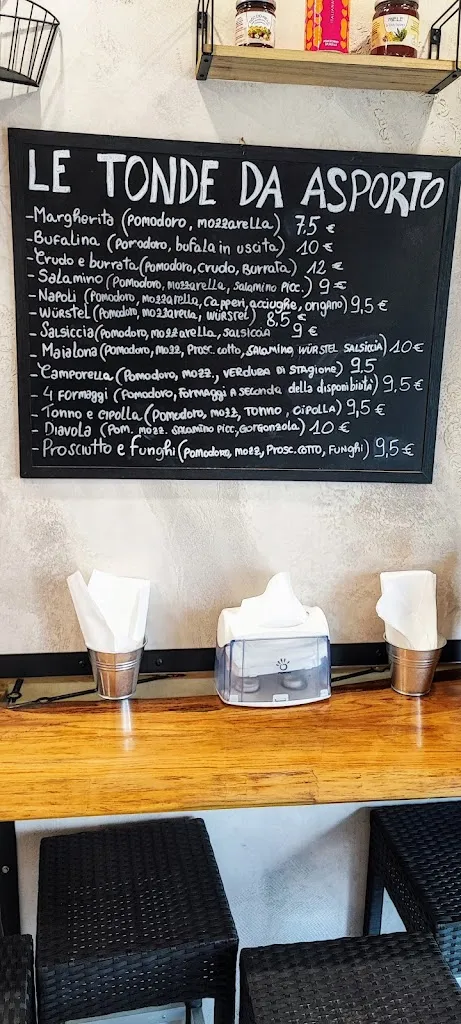 LE TONDE DA ASPORTO
-Margherita (pomodoro, mozzarella) 7.5 €
-Bufalina (pomodoro, bufala in uscita) 10 €
-Crudo e burrata (pomodoro, crudo, Burrata) 12 €
-Salamino (pomodoro, mozzarella, salamino picc.) 9 €
-Napoli (pomodoro, mozzarella, capperi, acciughe, origano) 9,5 €
-Würstel (pomodoro, mozzarella, würstel) 8,5 €
-Salsiccia (pomodoro, mozzarella, salsiccia 9 €
-Maialona (pomodoro, mozz, Prosc. cotto, salamino, würstel salsiccia) 10 €
-Camporella (Pomodoro, mozz., verdura di stagione) 9.5
-4 Formaggi (Pomodoro, Formaggi a seconda della disponibiltà) 9,5 €
-Tonno e cipolla (Pomodoro, mozz, Tonno, cipolla) 9,5 €
-Diavola (Pom. mozz. salamino picc, Gorgonzola) 10 €
-Prosciutto e funghi (Pomodoro, mozz, Prosc. cotto, funghi) 9,5 €
MIELE